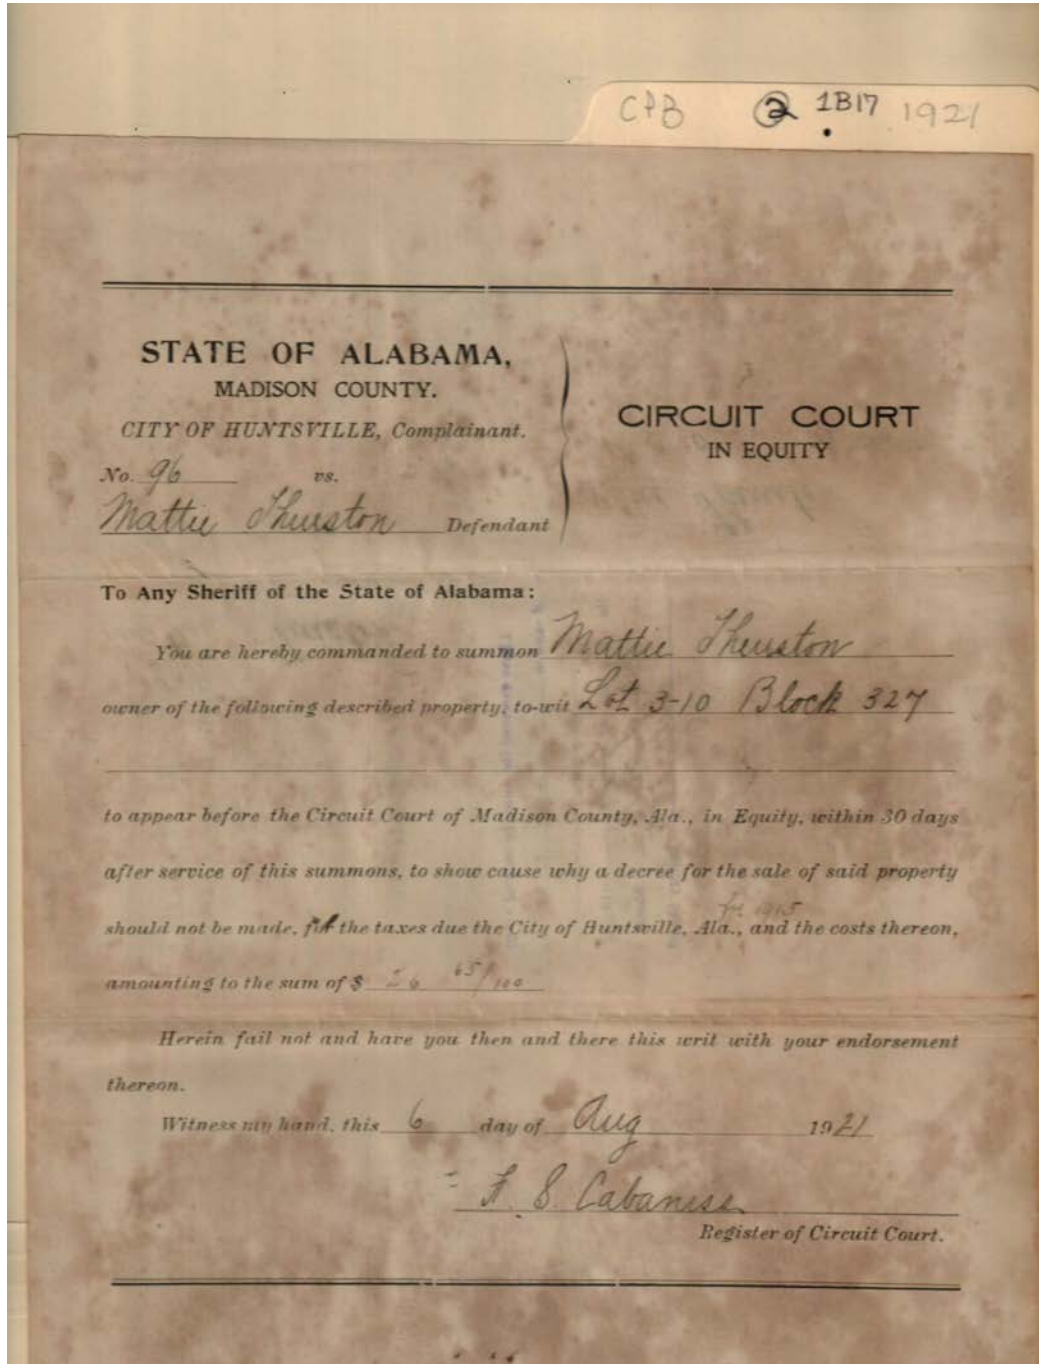 CPB 2 1B17 1921
STATE OF ALABAMA,
MADISON COUNTY.
CITY OF HUNTSVILLE, Complainant.
No. 96 vs.
Mattie Thurston Defendant
CIRCUIT COURT
IN EQUITY
To Any Sheriff of the State of Alabama:
You are hereby commanded to summon Mattie Thurston
owner of the following described property, to-wit Lot 3-10 Block 327
to appear before the Circuit Court of Madison County, Ala., in Equity, within 30 days
after service of this summons, to show cause why a decree for the sale of said property
for 1915
should not be made, for the taxes due the City of Huntsville, Ala., and the costs thereon,
amounting to the sum of $ 26 65/100
Herein fail not and have you then and there this writ with your endorsement
thereon.
Witness my hand, this 6 day of Aug 1921
F. S. Cabaniss
Register of Circuit Court.